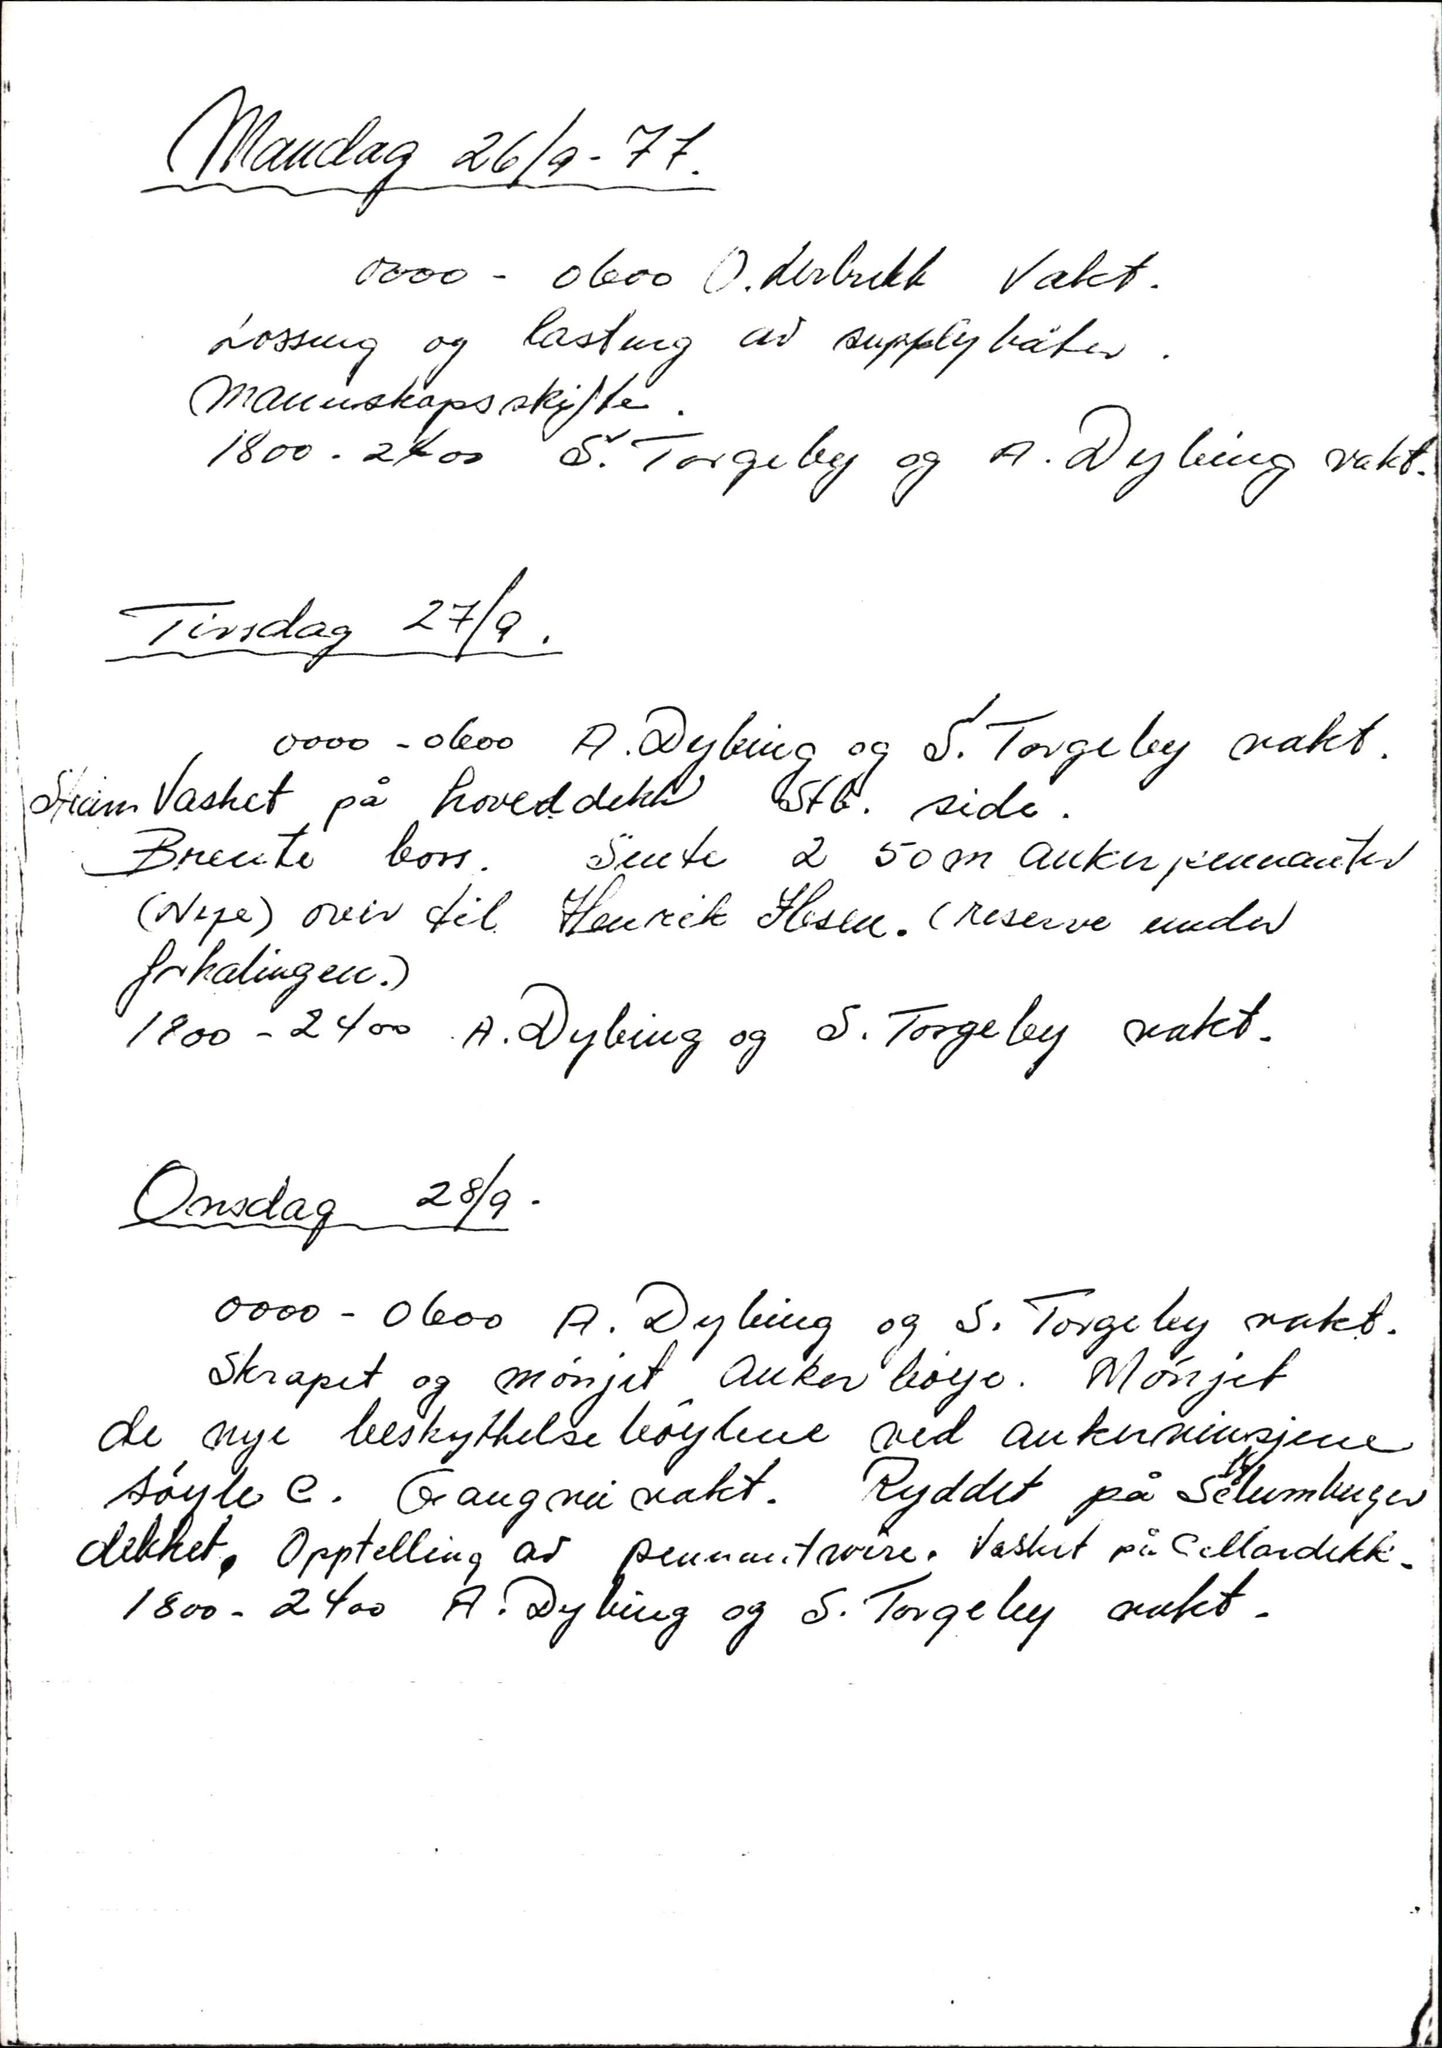 Mandag 26/9-77.
0000 - 0600 O. Vakt.
Lossing og lasting av supplybåter.
Mannskapsskifte.
1800 - 2400 S. Torgeby og A. Dybing vakt.
Tirsdag 27/9.
0000 - 0600 A. Dybing og S. Torgeby vakt.
Steam Vasket på hoveddekk Stb. side.
Brente boss. Sente 2 50m ankerpennanter
(Nye) over til Henrik Ibsen. (reserve under
forhalingen.)
1800 - 2400 A. Dybing og S. Torgeby vakt.
Onsdag 28/9.
0000 - 0600 A. Dybing og S. Torgeby vakt.
Skrapet og mønjet ankerbøye. Mønjet
de nye beskyttelsebøylene ved ankervinsjene
søyle C. Gangvei vakt. Ryddet på Schlumberger
dekket. Opptelling av pennantwire. Vasket på Cellardekk.
1800 - 2400 A. Dybing og S. Torgeby vakt.